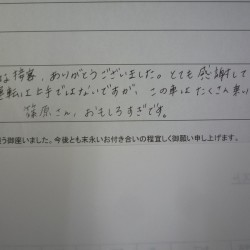 な接客、ありがとうございました。とても感謝して
運転は上手ではないですが、この車はたくさん乗い
篠原さん、おもしろすぎです。
う御座いました。今後とも末永いお付き合いの程宜しく御願い申し上げます。